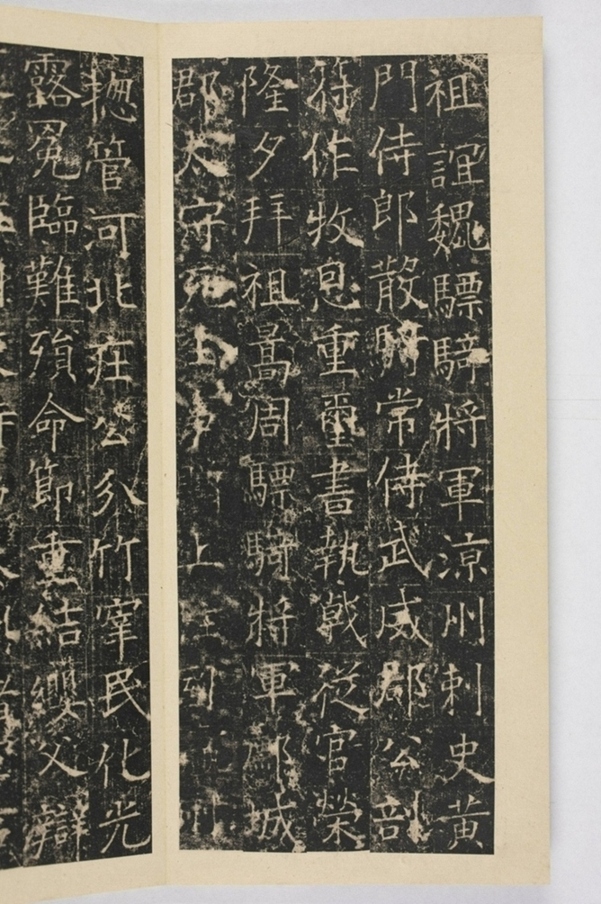 祖誼魏驃騎將軍涼州刺史黃
門侍郎散騎常侍武威郡公剖
符作牧息重璽書執戟從官榮
隆夕拜祖暠周驃騎將軍城
郡太守上上州
管河北庄公分竹宰民化光
露冕臨難殞命節重結纓父辯